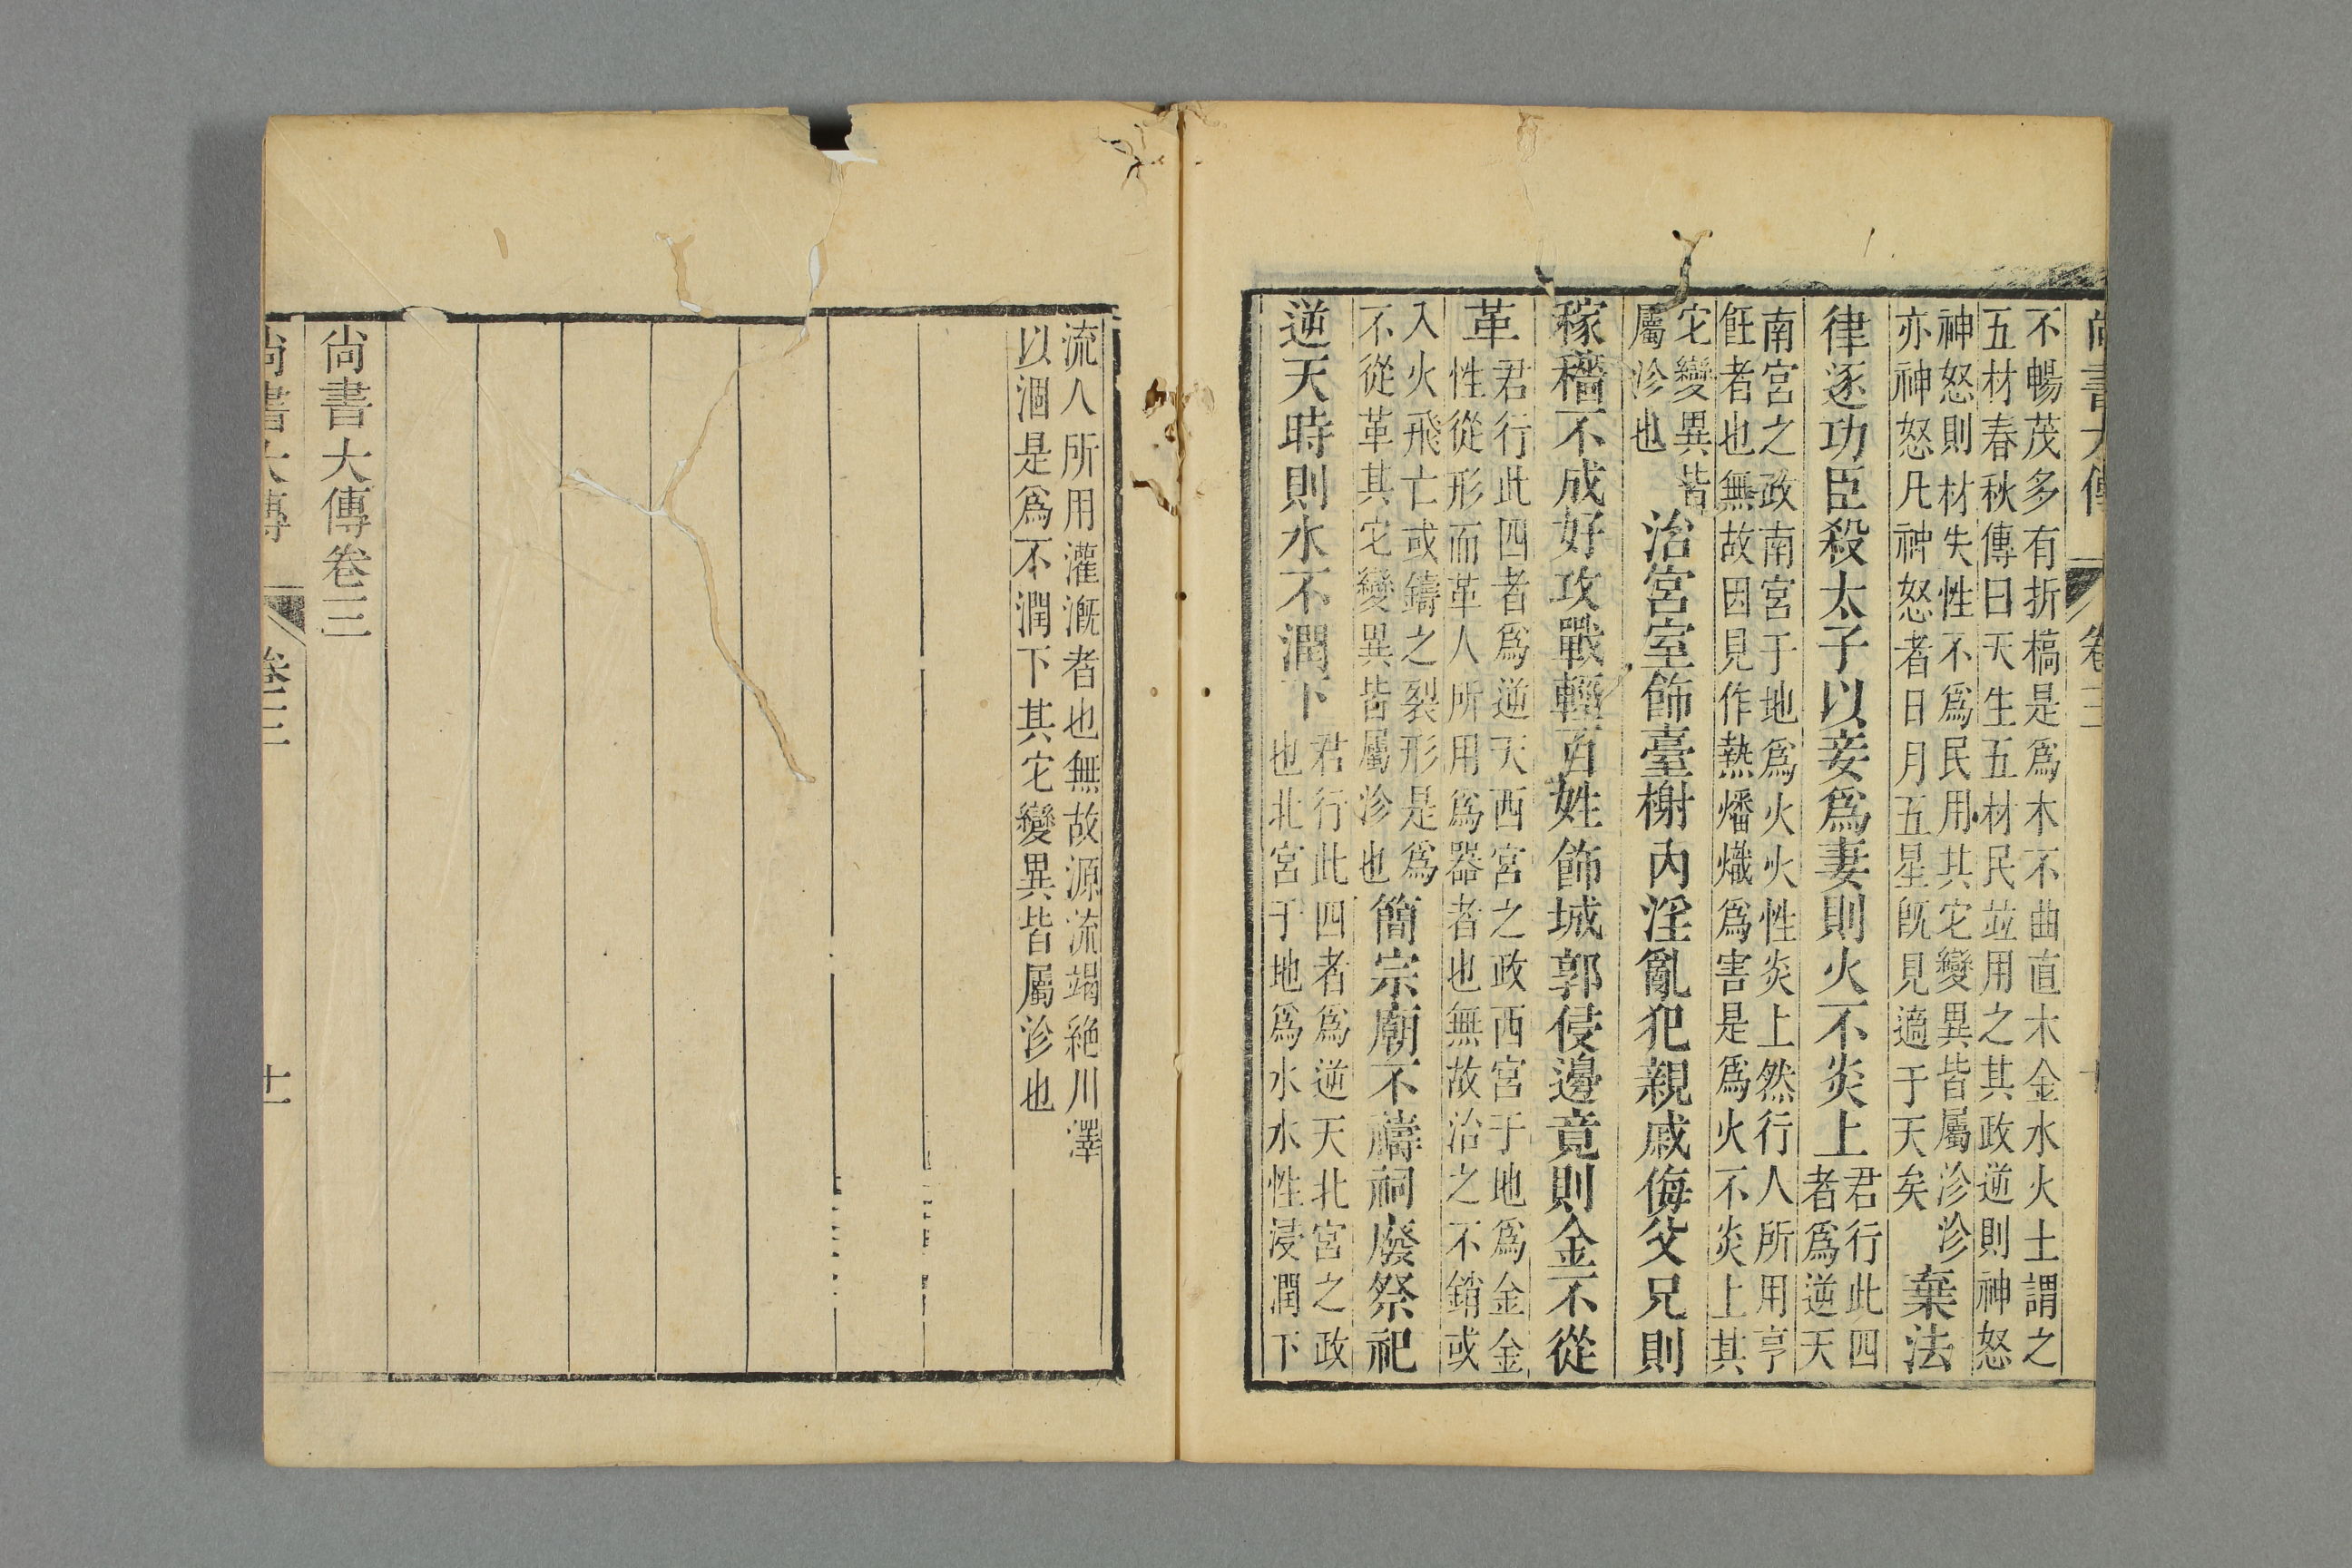 尚書大傳 卷三
不暢茂多有折槁是爲木不曲直木金水火土謂之
五材春秋傳曰天生五材民並用之其政逆則神怒
神怒則材失性不爲民用其它變異皆屬沴沴
亦神怒凡神怒者日月五星既見適于天矣
棄法
律逐功臣殺太子以妾爲妻則火不炎上
君行此四
者爲逆天
南宮之政南宮于地爲火火性炎上然行人所用亨
飪者也無故因見作熱燔熾爲害是爲火不炎上其
它變異皆
屬沴也
治宮室飾臺榭內淫亂犯親戚侮父兄則
稼穡不成好攻戰輕百姓飾城郭侵邊竟則金不從
革
君行此四者爲逆天西宮之政西宮于地爲金金
性從形而革人所用爲器者也無故治之不銷或
入火飛亡或鑄之裂形是爲
不從革其它變異皆屬沴也
簡宗廟不禱祠廢祭祀
逆天時則水不潤下
君行此四者爲逆天北宮之政
也北宮于地爲水水性浸潤下
流人所用灌漑者也無故源流竭絶川澤
以涸是爲不潤下其它變異皆屬沴也
尚書大傳卷三
尚書大傳 卷三 十一